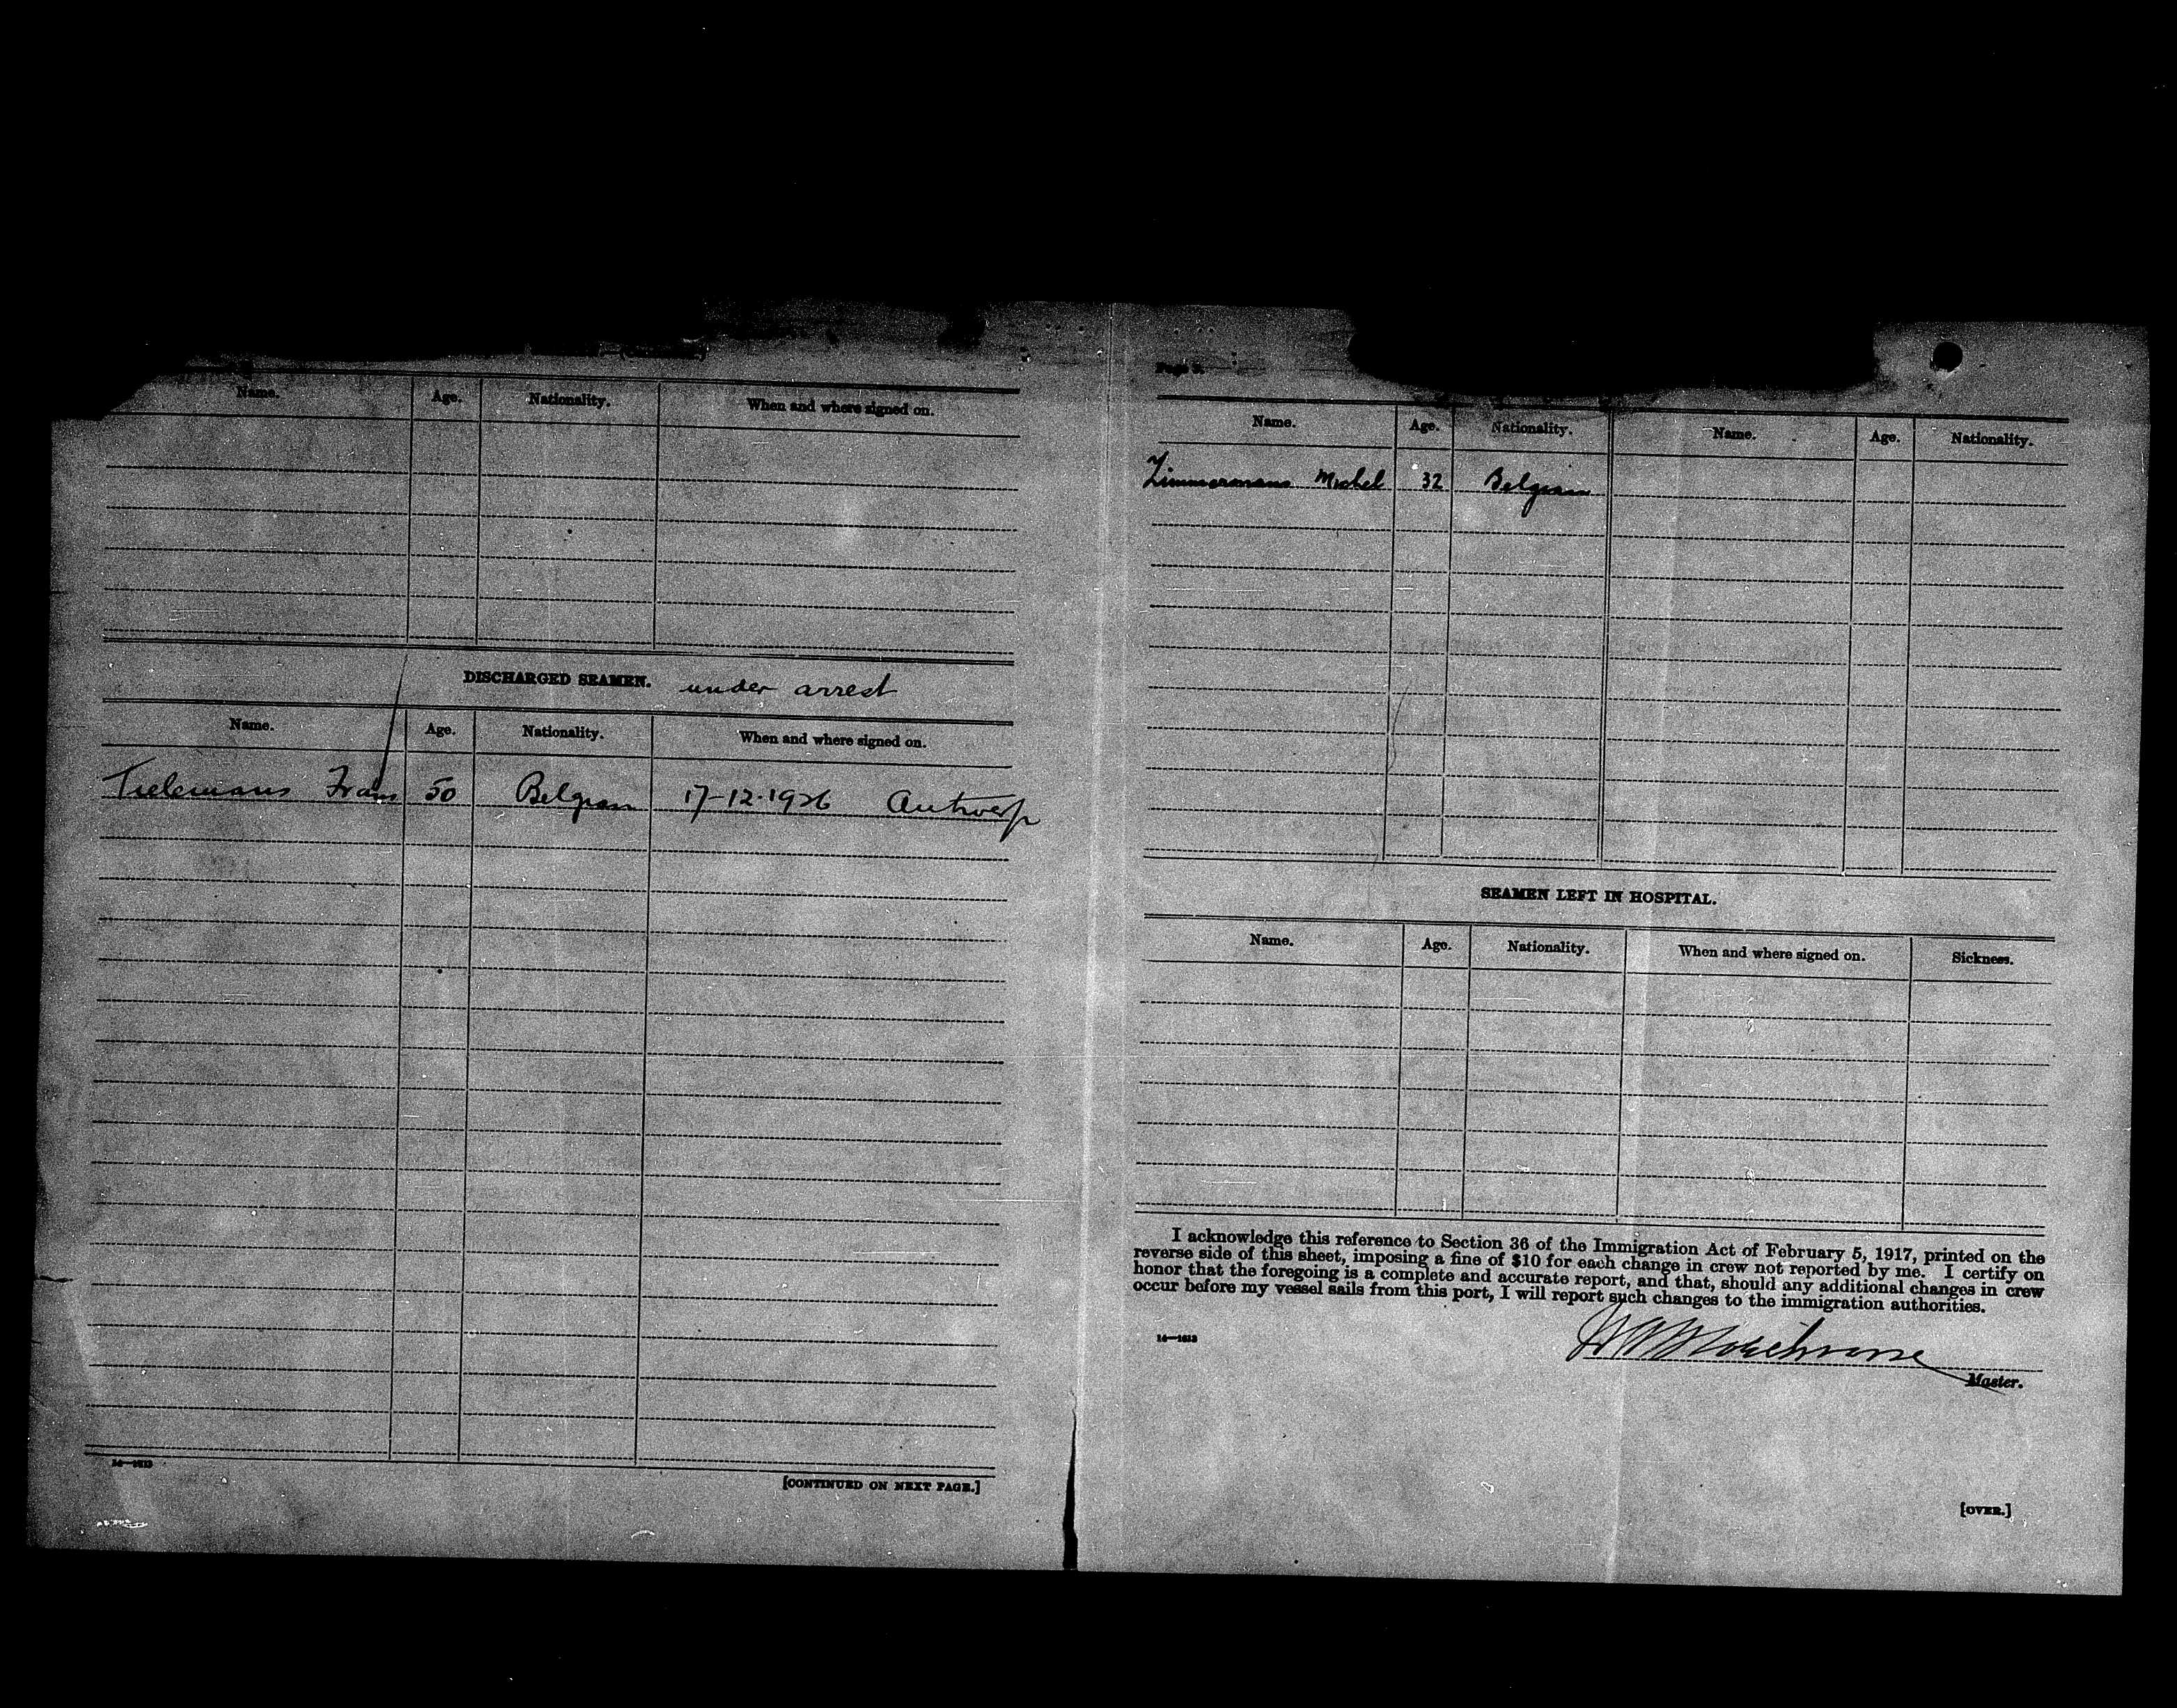 Name. Age. Nationality. When and where signed on.
DISCHARGED SEAMEN. under arrest
Name. Age. Nationality. When and where signed on.
Tielemans Frans 50 Belgian 17-12-1926 Antwerp
14—1613
[CONTINUED ON NEXT PAGE.]
Page 3.
Name. Age. Nationality. Name. Age. Nationality.
Zimmermans Michel 32 Belgian
SEAMEN LEFT IN HOSPITAL.
Name. Age. Nationality. When and where signed on. Sickness.
I acknowledge this reference to Section 36 of the Immigration Act of February 5, 1917, printed on the
reverse side of this sheet, imposing a fine of $10 for each change in crew not reported by me. I certify on
honor that the foregoing is a complete and accurate report, and that, should any additional changes in crew
occur before my vessel sails from this port, I will report such changes to the immigration authorities.
14—1613
Master.
[OVER.]